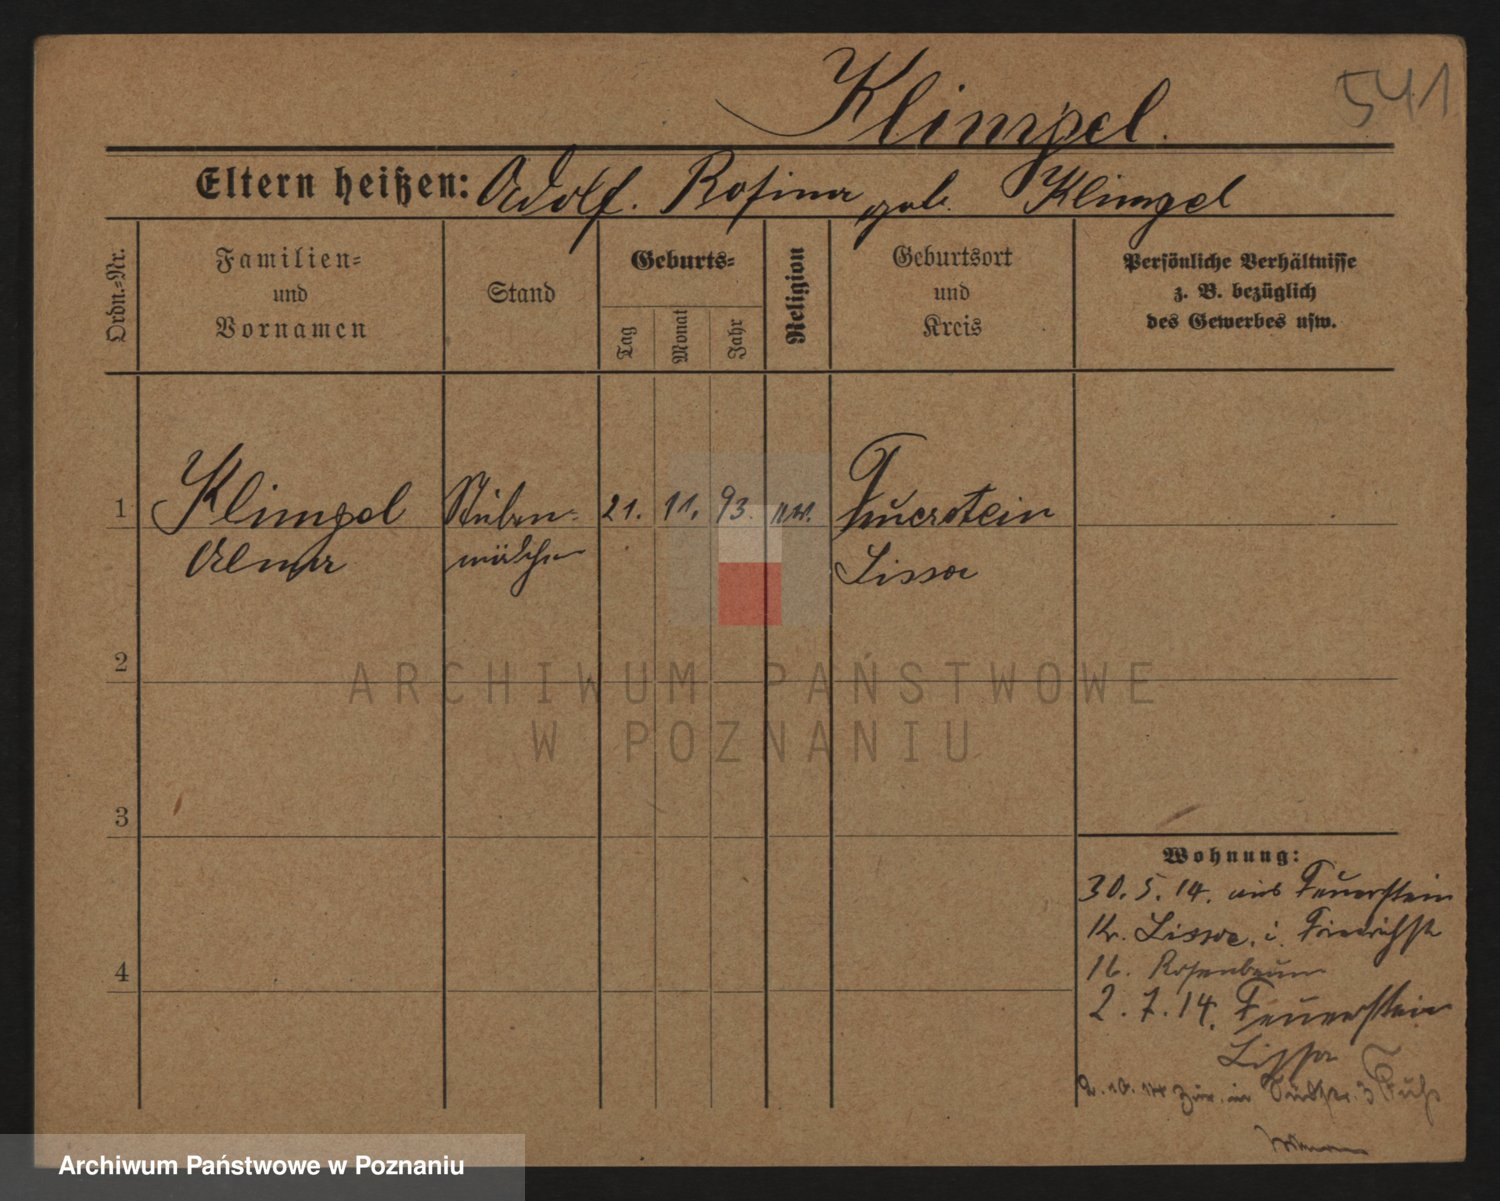 541
Klimpel.
Eltern heißen: Adolf. Rosina geb. Klimpel
Ordn.-Nr.
Familien-
und
Vornamen
Stand
Geburts-
Tag
Monat
Jahr
Religion
Geburtsort
und
Kreis
Persönliche Verhältnisse
z. B. bezüglich
des Gewerbes usw.
1
Klimpel Stuben- 21. 11. 93. ev. Feuerstein
Alma mädchen Lissa
2
3
4
Wohnung:
30. 5. 14. aus Feuerstein
Kr. Lissa. i. Friedrichstr
16. Rosenbaum
2. 7. 14. Feuerstein
Lissa
2. 10. 14 zur. in 3
ARCHIWUM PAŃSTWOWE
W POZNANIU
Archiwum Państwowe w Poznaniu